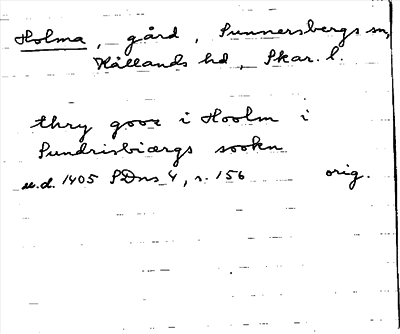 Holma, gård, Sunnersbergs sn,
Kållands hd, Skar. l.
thry gooz i Hoolm i
Sundrisbiærgs sookn
u.d. 1405 SDns 4, s. 156 orig.